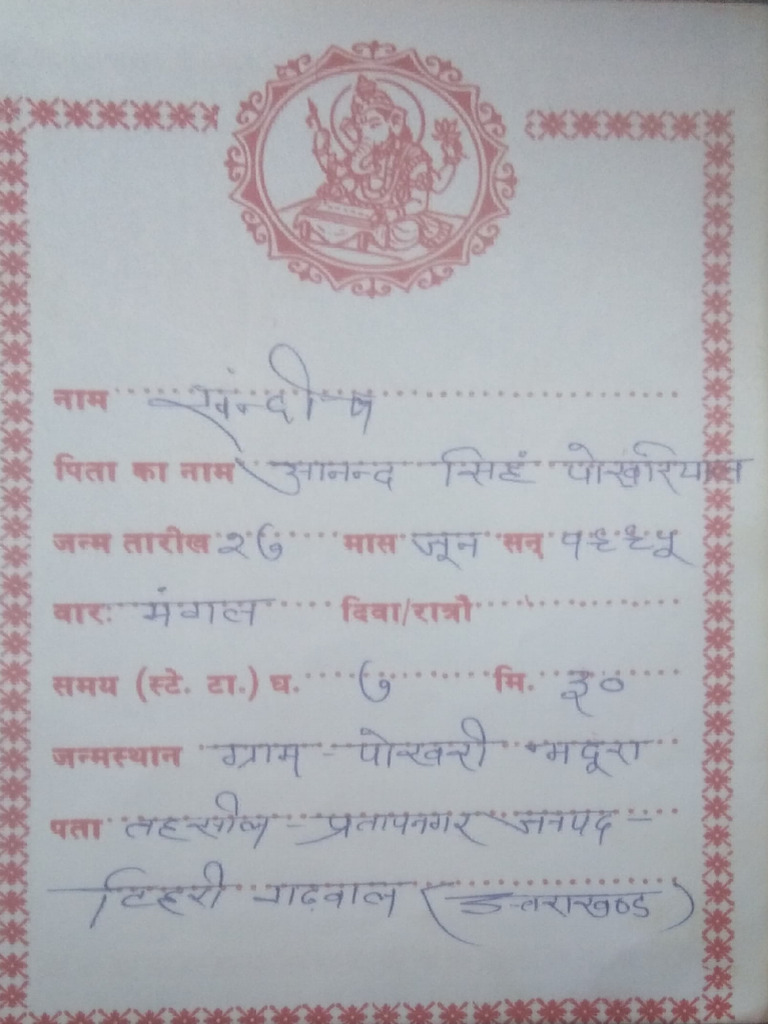 नाम सन्दीप
पिता का नाम आनन्द सिहं पोखरियाल
जन्म तारीख २७ मास जून सन् १९९५
वारः मंगल दिवा/रात्रौ
समय (स्टे. टा.) घ. ७ मि. ३०
जन्मस्थान ग्राम - पोखरी
पता तहसील - प्रतापनगर जनपद -
टिहरी गढ़वाल (उत्तराखण्ड)